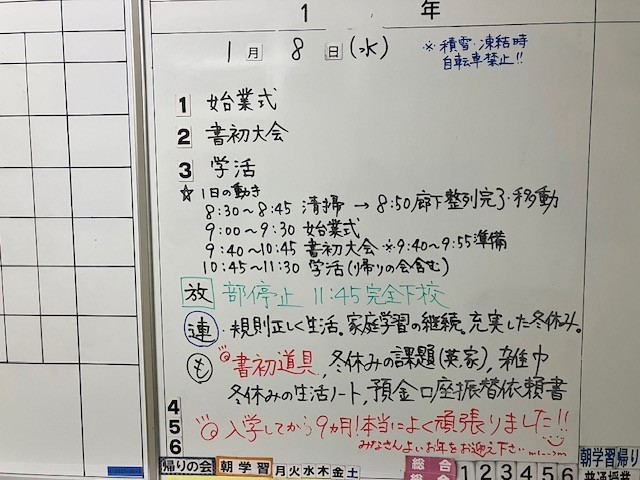 1 年
1月 8日(水) ※積雪・凍結時
自転車禁止!!
1 始業式
2 書初大会
3 学活
☆ 1日の動き
8:30〜8:45 清掃 → 8:50廊下整列完了・移動
9:00〜9:30 始業式
9:40〜10:45 書初大会 ※9:40〜9:55準備
10:45〜11:30 学活(帰りの会含む)
放 部停止 11:45完全下校
連 ・規則正しく生活。家庭学習の継続。充実した冬休み。
も 書初道具, 冬休みの課題(英,家), 雑巾
冬休みの生活ノート, 預金口座振替依頼書
4
5 入学してから9ヵ月!本当によく頑張りました!!
6 みなさんよいお年をお迎え下さい
帰りの会 朝学習 月火水木金土 総合 1 2 3 4 5 6 朝学習帰り
総合 普通授業